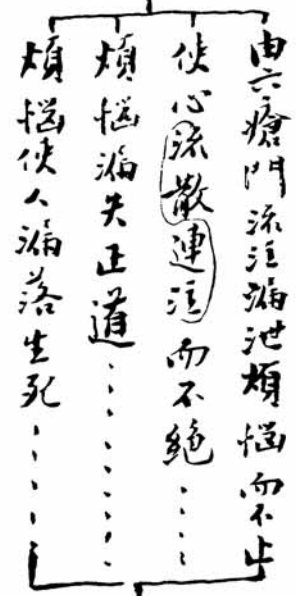 由六瘡門流注漏泄煩惱而不止
使心流散連注而不絕……
煩惱漏失正道…………
煩惱使人漏落生死……